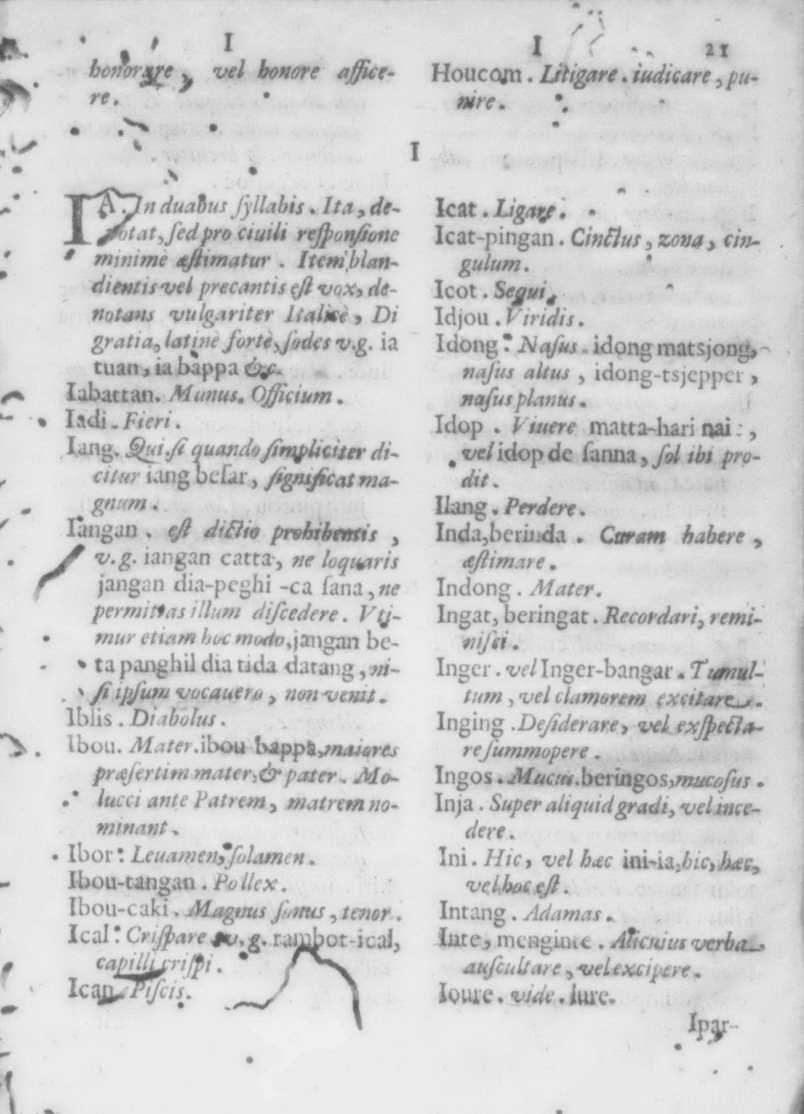 I
honorare, vel honore affice-
re.
I 21
Houcom. Litigare. iudicare, pu-
nire.
I
IA. In duabus ſyllabis. Ita, de-
notat, ſed pro ciuili reſponſione
minimè æſtimatur. Item blan-
dientis vel precantis eſt vox, de-
notans vulgariter Italicè, Di
gratia, latinè fortè, ſodes v.g. ia
tuan, ia bappa &c.
Iabattan. Munus. Officium.
Iadi. Fieri.
Iang. Qui. ſi quando ſimpliciter di-
citur iang beſar, ſignificat ma-
gnum.
Iangan. eſt dictio prohibentis,
v.g. iangan catta, ne loquaris
jangan dia-peghi-ca ſana, ne
permittas illum diſcedere. Vti-
mur etiam hoc modo, jangan be-
ta panghil dia tida datang, ni-
ſi ipſum vocauero, non venit.
Iblis. Diabolus.
Ibou. Mater. ibou bappa, maiores
præſertim mater, & pater. Mo-
lucci ante Patrem, matrem no-
minant.
Ibor. Leuamen, ſolamen.
Ibou-tangan. Pollex.
Ibou-caki. Magnus ſonus, tenor.
Ical. Criſpare v.g. rambot-ical,
capilli criſpi.
Ican. Piſcis.
Icat. Ligare.
Icat-pingan. Cinctus, zona, cin-
gulum.
Icot. Sequi.
Idjou. Viridis.
Idong. Naſus. idong matsjong,
naſus altus, idong-tsjepper,
naſus planus.
Idop. Viuere matta-hari nai:,
vel idop de ſanna, ſol ibi pro-
dit.
Ilang. Perdere.
Inda, berinda. Curam habere,
æſtimare.
Indong. Mater.
Ingat, beringat. Recordari, remi-
niſci.
Inger. vel Inger-bangar. Tumul-
tum, vel clamorem excitare.
Inging. Deſiderare, vel exſpecta-
re ſummopere.
Ingos. Mucus. beringos, mucoſus.
Inja. Super aliquid gradi, vel ince-
dere.
Ini. Hic, vel hæc ini-ia, hic, hæc,
vel hoc eſt.
Intang. Adamas.
Inte, menginte. Alicuius verba
auſcultare, vel excipere.
Ioure. vide. Iure.
Ipar-